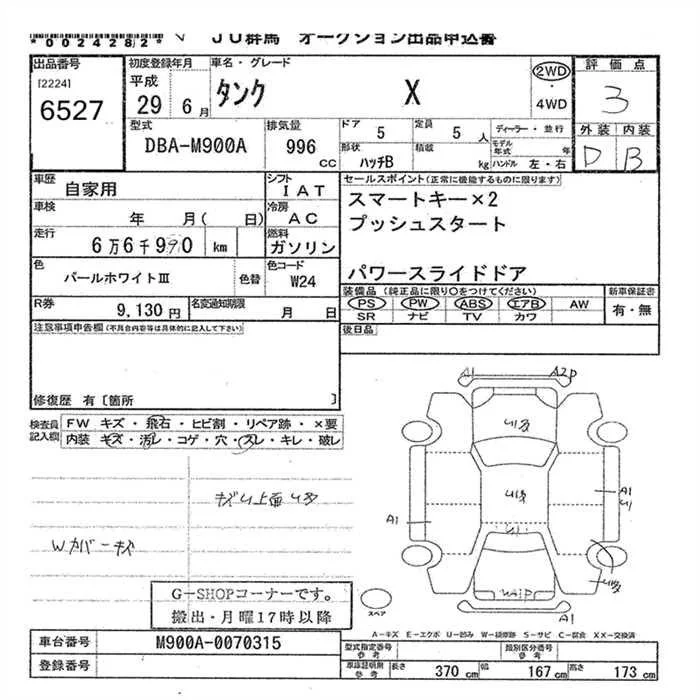 *0024282* JU群馬 オークション出品申込書
出品番号 初度登録年月 車名・グレード 2WD 評価点
[2224] 平成
6527 29 6月 タンク X 4WD 3
型式 排気量 ドア 5 定員 5人 ディーラー・並行 外装 内装
DBA-M900A 996cc 形状 ハッチB 積載 kg モデル年式 年 ハンドル 左・右 D B
車歴 自家用 シフト IAT セールスポイント(正常に機能するものに限ります)
車検 年 月( 日) 冷房 AC スマートキー×2
走行 6万6千990km 燃料 ガソリン プッシュスタート
色 パールホワイトⅢ 色替 色コード W24 パワースライドドア
R券 9,130円 名変通知期限 月 日 装備品(純正品に限り○をつけてください) 新車保証書
PS PW ABS エアB AW 有・無
SR ナビ TV カワ
注意事項申告欄(不具合内容等は具体的に記入して下さい) 後日品
修復歴 有〔箇所 〕
検査員記入欄 FW キズ・飛石・ヒビ割・リペア跡・×要
内装 キズ・汚レ・コゲ・穴・スレ・キレ・破レ
A1 A2P
A1
A1
A1
Wカバーキズ
G-SHOPコーナーです。
搬出・月曜17時以降
スペア
A-キズ E-エクボ U-凹み W-補修跡 S-サビ C-腐食 XX-交換済
車台番号 M900A-0070315 型式指定番号 参考 類別区分番号 参考
登録番号 車庫証明用 参考 長さ 370cm 幅 167cm 高さ 173cm